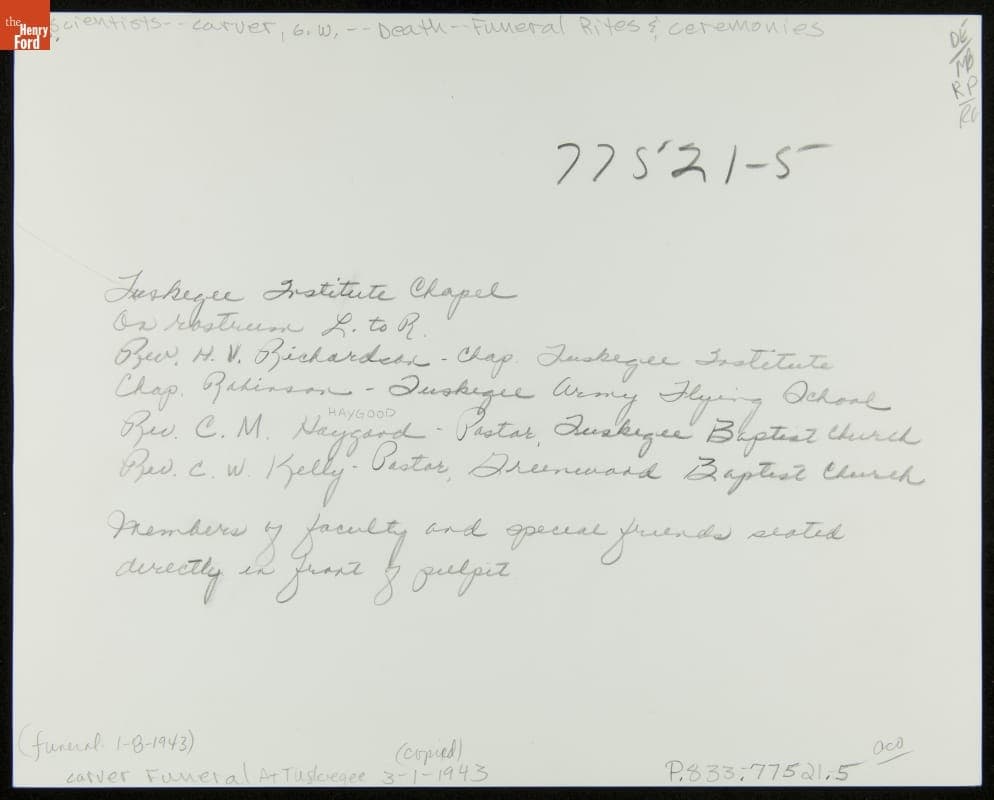 the
Henry
Ford
Scientists -- Carver, G.W. -- Death -- Funeral Rites & Ceremonies
DE/
MB
RP/
77521-5
Tuskegee Institute Chapel
On rostrum L. to R.
Rev. H. V. Richardson - Chap. Tuskegee Institute
Chap. Robinson - Tuskegee Army Flying School
HAYGOOD
Rev. C. M. Haygood - Pastor, Tuskegee Baptist Church
Rev. C. W. Kelly - Pastor, Greenwood Baptist Church
Members of faculty and special friends seated
directly in front of pulpit
(funeral 1-8-1943)
(copied)
aco
Carver Funeral At Tuskegee 3-1-1943
P.833.77521.5